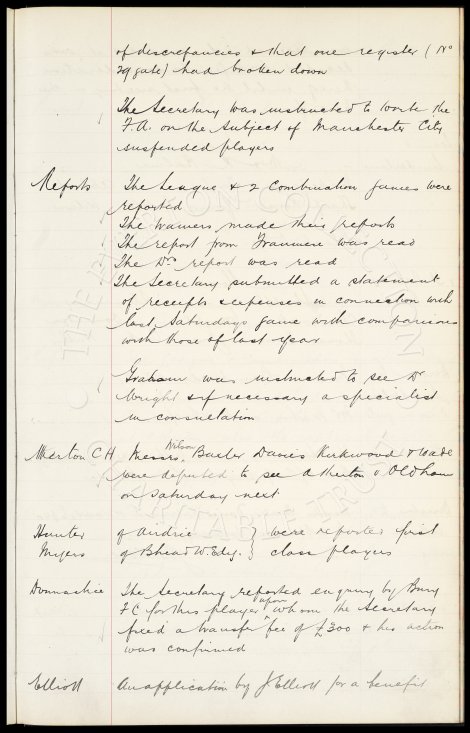 of discrepancies & that one register (No
29 gate) had broken down
The Secretary was instructed to write the
F.A. on the subject of Manchester City
suspended players
Reports The League & 2 Combination games were
reported
The trainers made their reports
The report from was read
The Drs report was read
The Secretary submitted a statement
of receipts & expenses in connection with
last Saturdays game with comparisons
with those of last year
Graham was instructed to see Dr
Wright & if necessary a specialist
in consultation
Atherton C H Messrs Wilson Baxter Davies Kirkwood & Wade
were deputed to see Atherton v Oldham
on Saturday next
Hunter of Airdrie } were reported first
Myers of Bhead W. Edg. } class players
Donnachie The Secretary reported enquiry by Bury
F C for this player upon whom the Secretary
fixed a transfer fee of £300 & his action
was confirmed
Elliott An application by J Elliott for a benefit